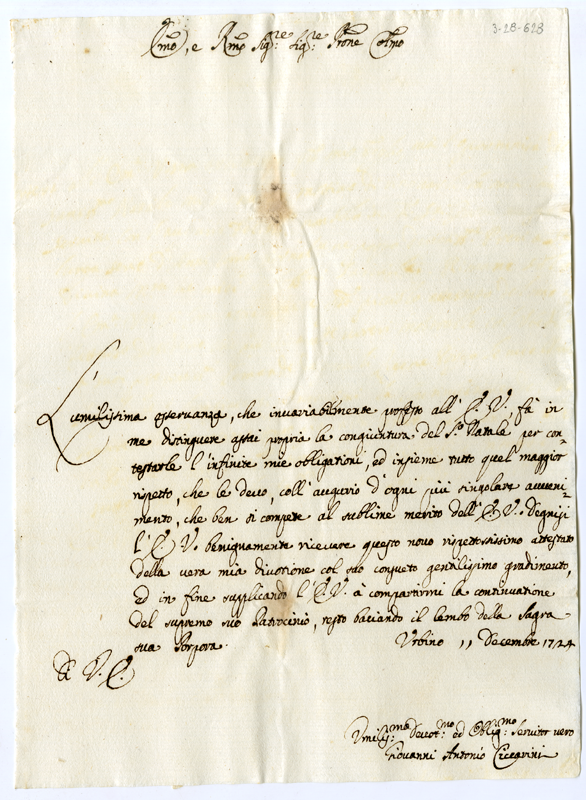 3-28-628
Emo, e Rmo Sigre: Sigre: Prone Colmo
L'umilissima osservanza, che invariabilmente professo all' E. V., fà in
me distinguere assai propria la congiuntura del So. Natale per con-
testarle l'infinite mie obligationi, ed insieme tutto quel maggior
rispetto, che le devo, coll' augurio d'ogni più singolare avveni-
mento, che ben si compete al sublime merito dell' E. V. Degnisi
l' E. V. benignamente ricevere questo novo rispettosissimo attestato
della vera mia divotione col suo consueto gentilissimo gradimento,
ed in fine supplicando l' E. V. à compartirmi la continuatione
del supremo suo Patrocinio, resto baciando il lembo della Sagra
sua Porpora.
Urbino 11 Decembre 1724
Di V. E.
Umiliss:mo Devot:mo ed Oblig:mo Servitor vero
Giovanni Antonio Ciccarini